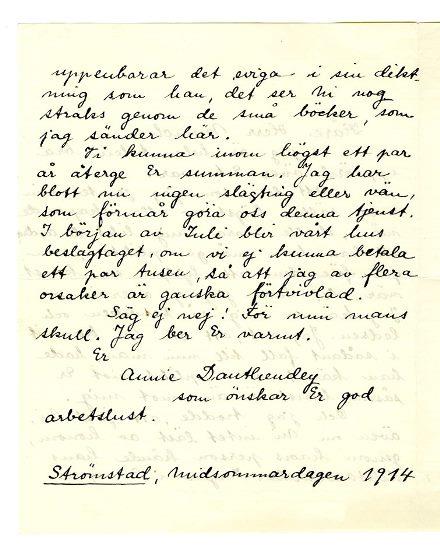 uppenbarar det eviga i sin dikt-
ning som han, det ser Ni nog
straks genom de små böcker, som
jag sänder här.
Vi kunna inom högst ett par
år återge Er summan. Jag har
blott nu ingen släkting eller vän,
som förmår göra oss denna tjenst.
I början av Juli blir vårt hus
beslagtaget, om vi ej kunna betala
ett par tusen, så att jag av flera
orsaker är ganska förtvivlad.
Säg ej nej! För min mans
skull. Jag ber Er varmt.
Er
Annie Dauthendey
som önskar Er god
arbetslust.
Strömstad, Midsommardagen 1914